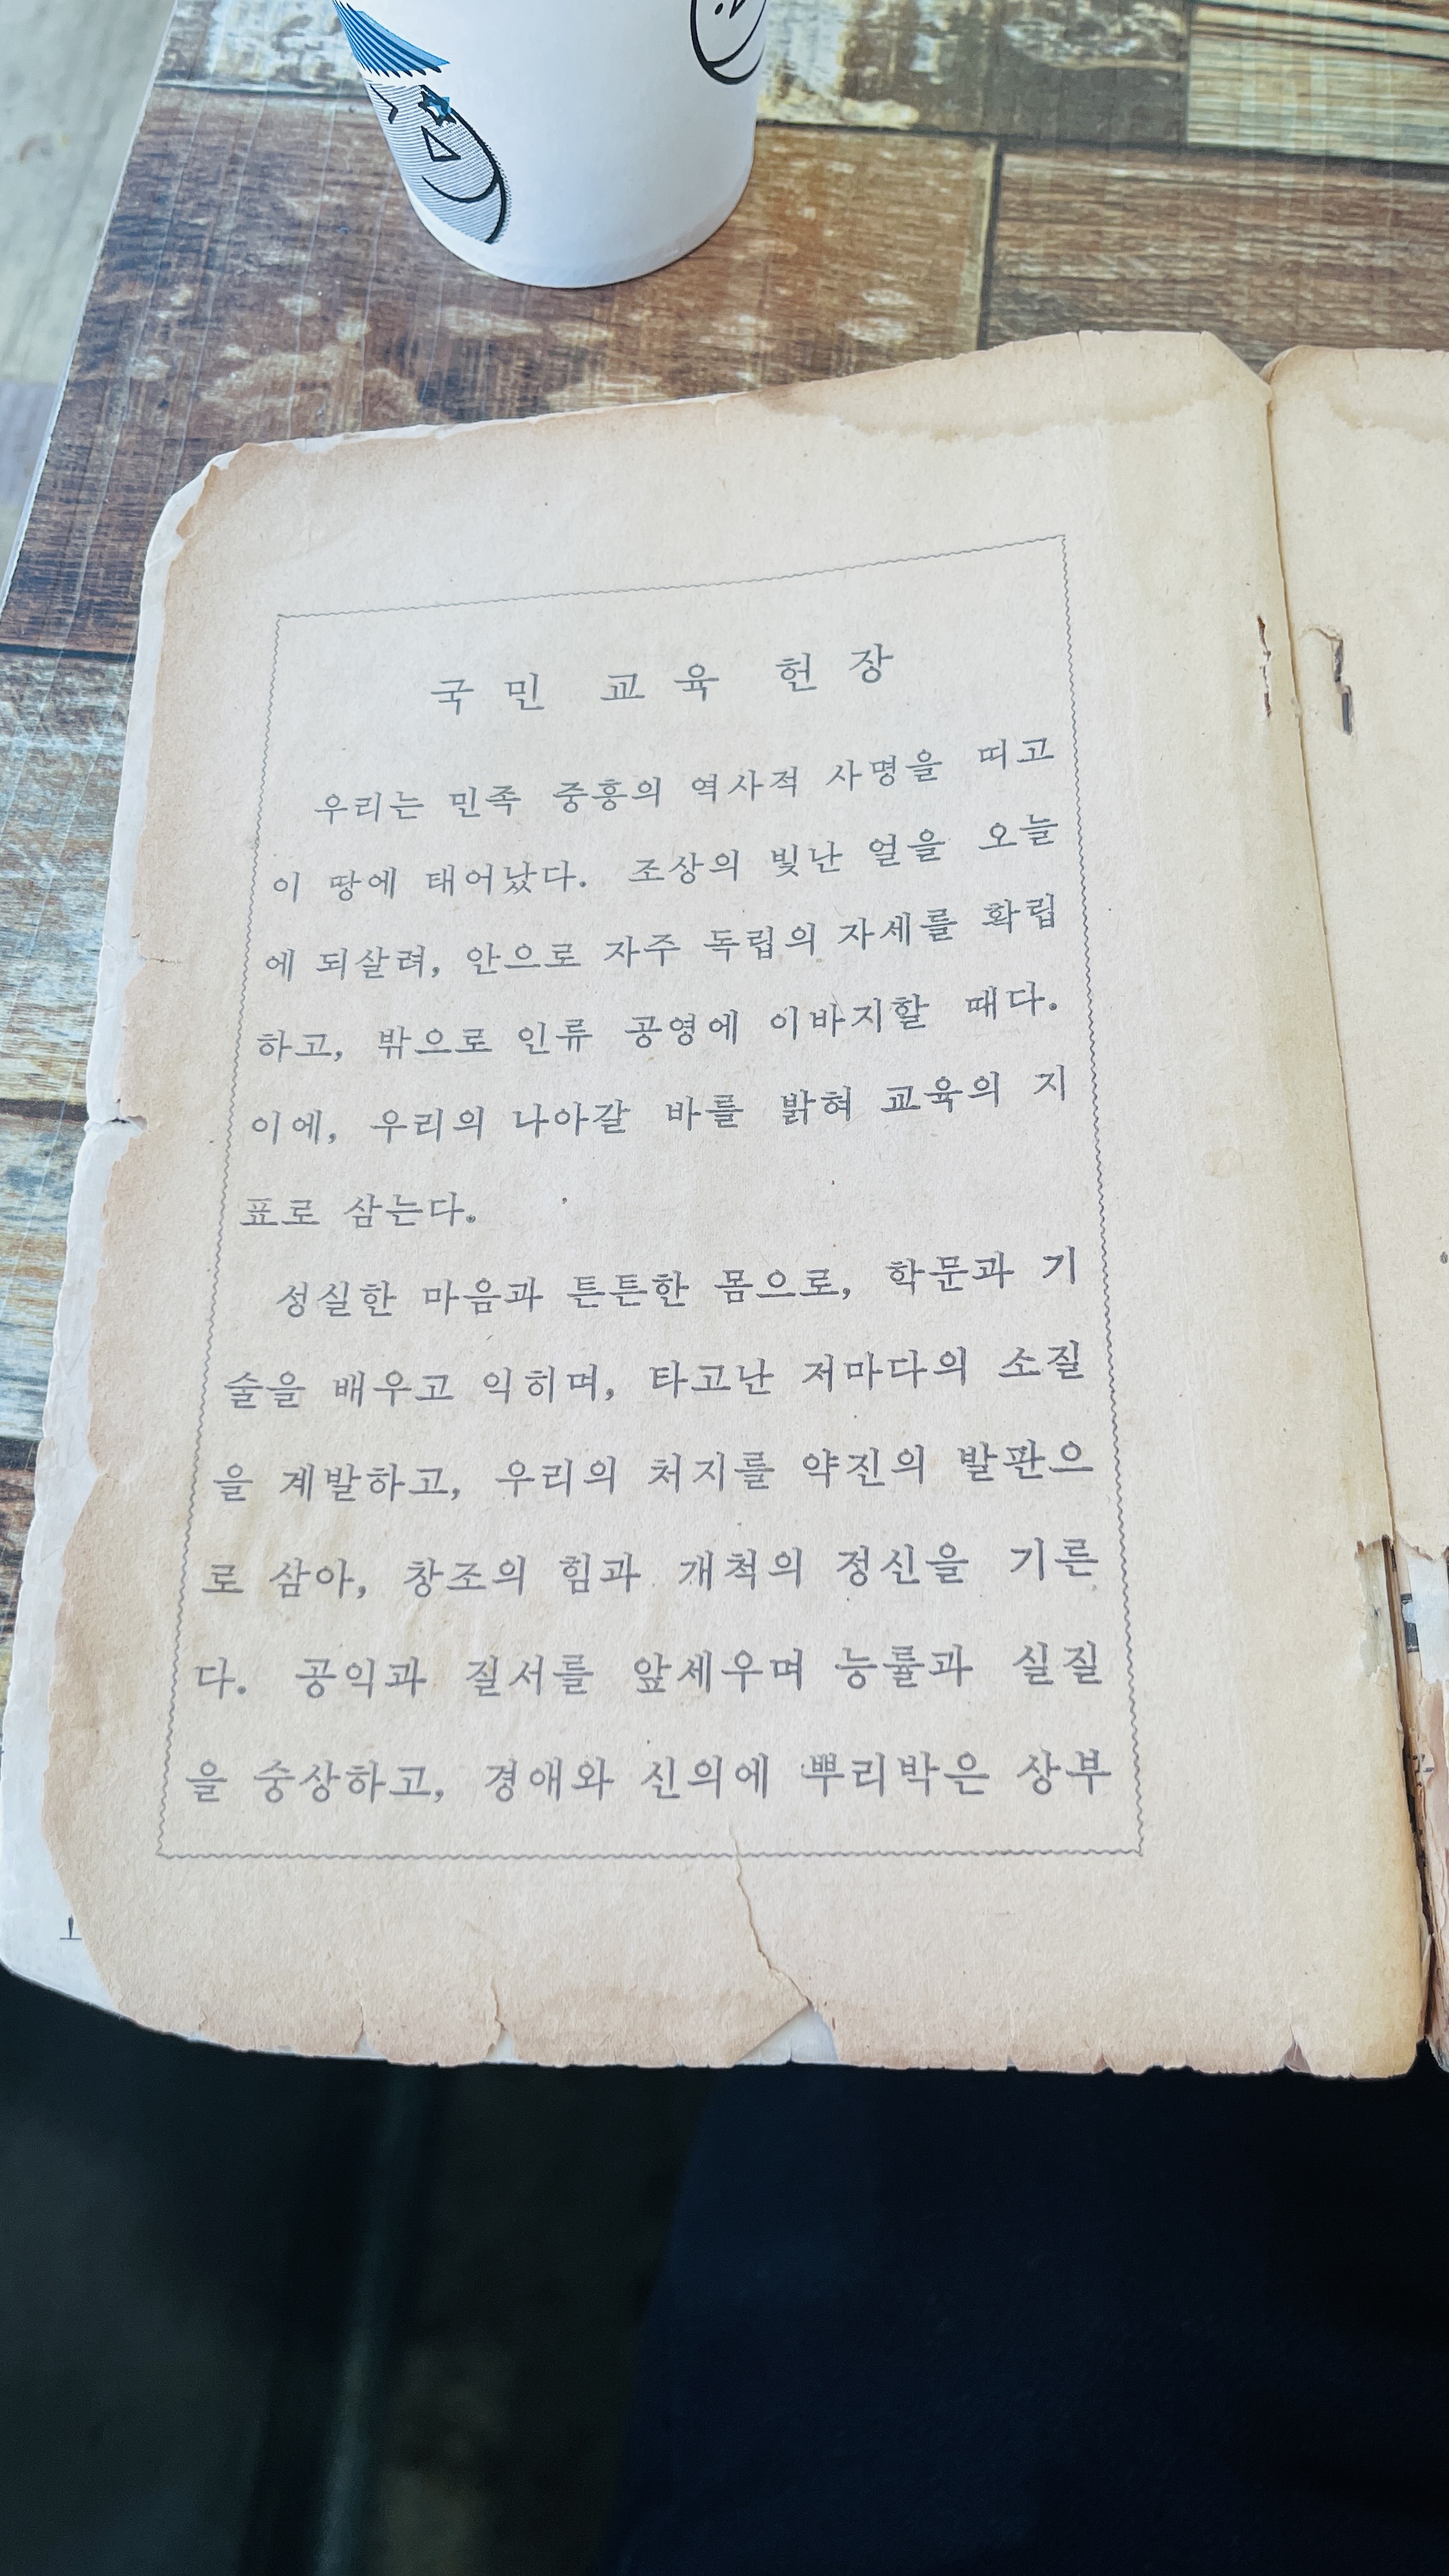 국민 교육 헌장
우리는 민족 중흥의 역사적 사명을 띠고
이 땅에 태어났다. 조상의 빛난 얼을 오늘
에 되살려, 안으로 자주 독립의 자세를 확립
하고, 밖으로 인류 공영에 이바지할 때다.
이에, 우리의 나아갈 바를 밝혀 교육의 지
표로 삼는다.
성실한 마음과 튼튼한 몸으로, 학문과 기
술을 배우고 익히며, 타고난 저마다의 소질
을 계발하고, 우리의 처지를 약진의 발판으
로 삼아, 창조의 힘과 개척의 정신을 기른
다. 공익과 질서를 앞세우며 능률과 실질
을 숭상하고, 경애와 신의에 뿌리박은 상부